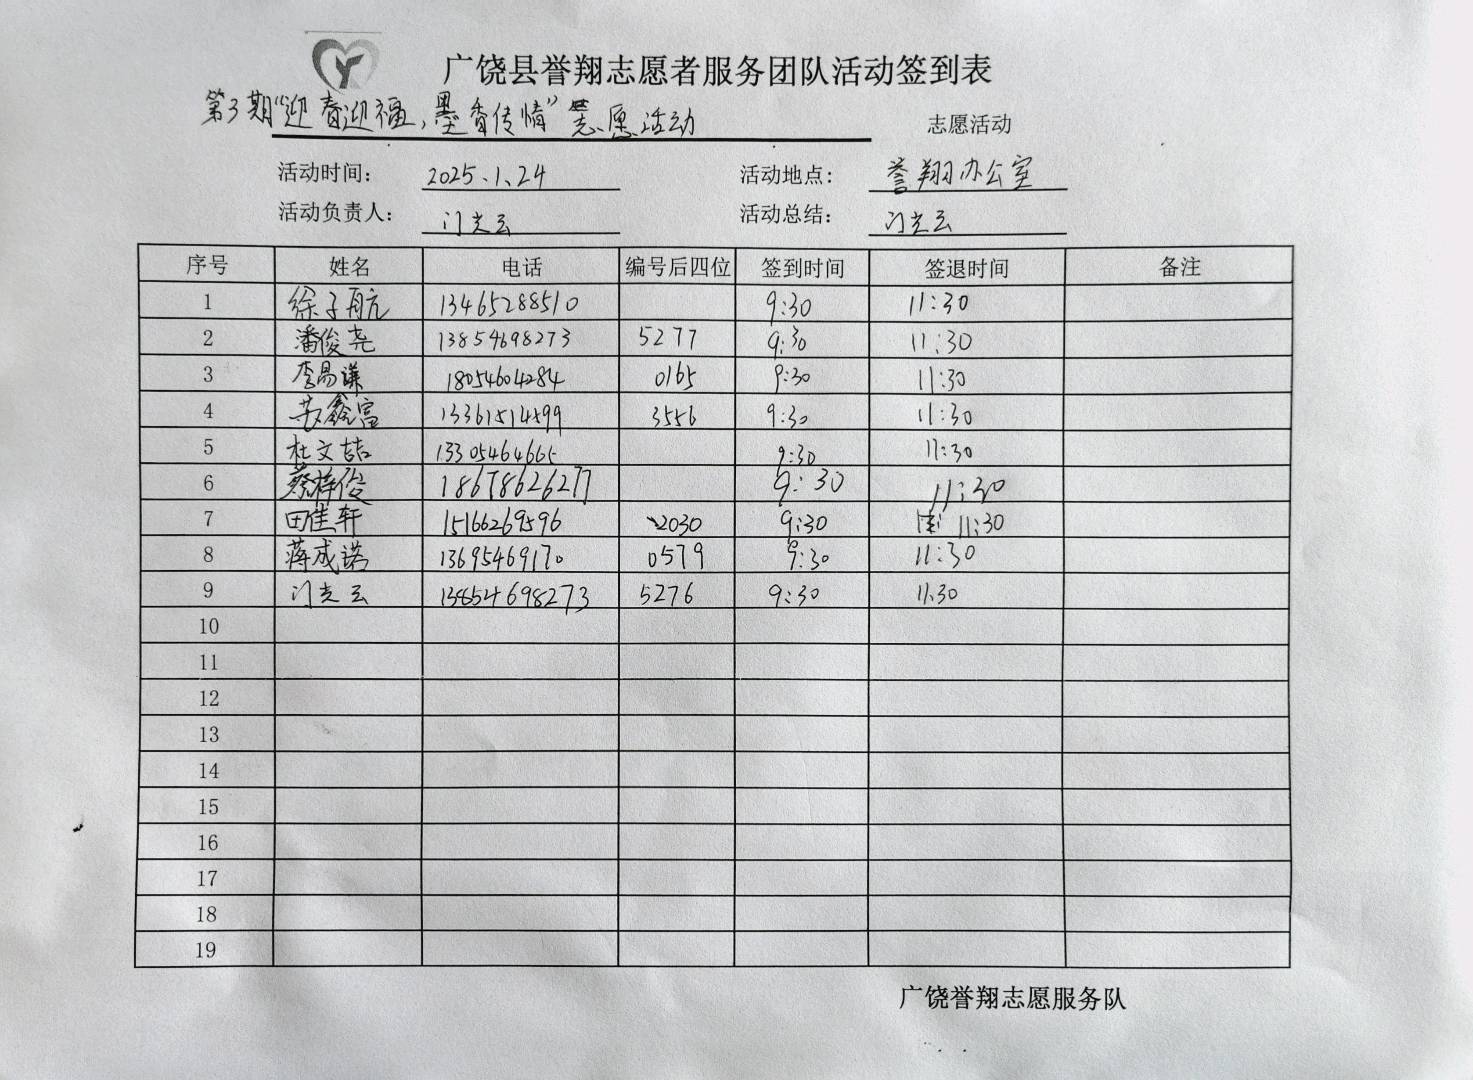 广饶县誉翔志愿者服务团队活动签到表
第3期“迎春迎福,墨香传情”志愿活动 志愿活动
活动时间： 2025.1.24 活动地点： 誉翔办公室
活动负责人： 门光云 活动总结： 门光云
序号 姓名 电话 编号后四位 签到时间 签退时间 备注
1 徐子航 13465288510 9:30 11:30
2 潘俊尧 13854698273 5277 9:30 11:30
3 李昌谦 18054604284 0165 9:30 11:30
4 苏鑫富 13361514599 3556 9:30 11:30
5 杜文喆 13305464665 9:30 11:30
6 蔡梓俊 18678626277 9:30 11:30
7 田佳轩 15166269596 2030 9:30 11:30
8 蒋成诺 13695469170 0579 9:30 11:30
9 门光云 13854698273 5276 9:30 11:30
10
11
12
13
14
15
16
17
18
19
广饶誉翔志愿服务队